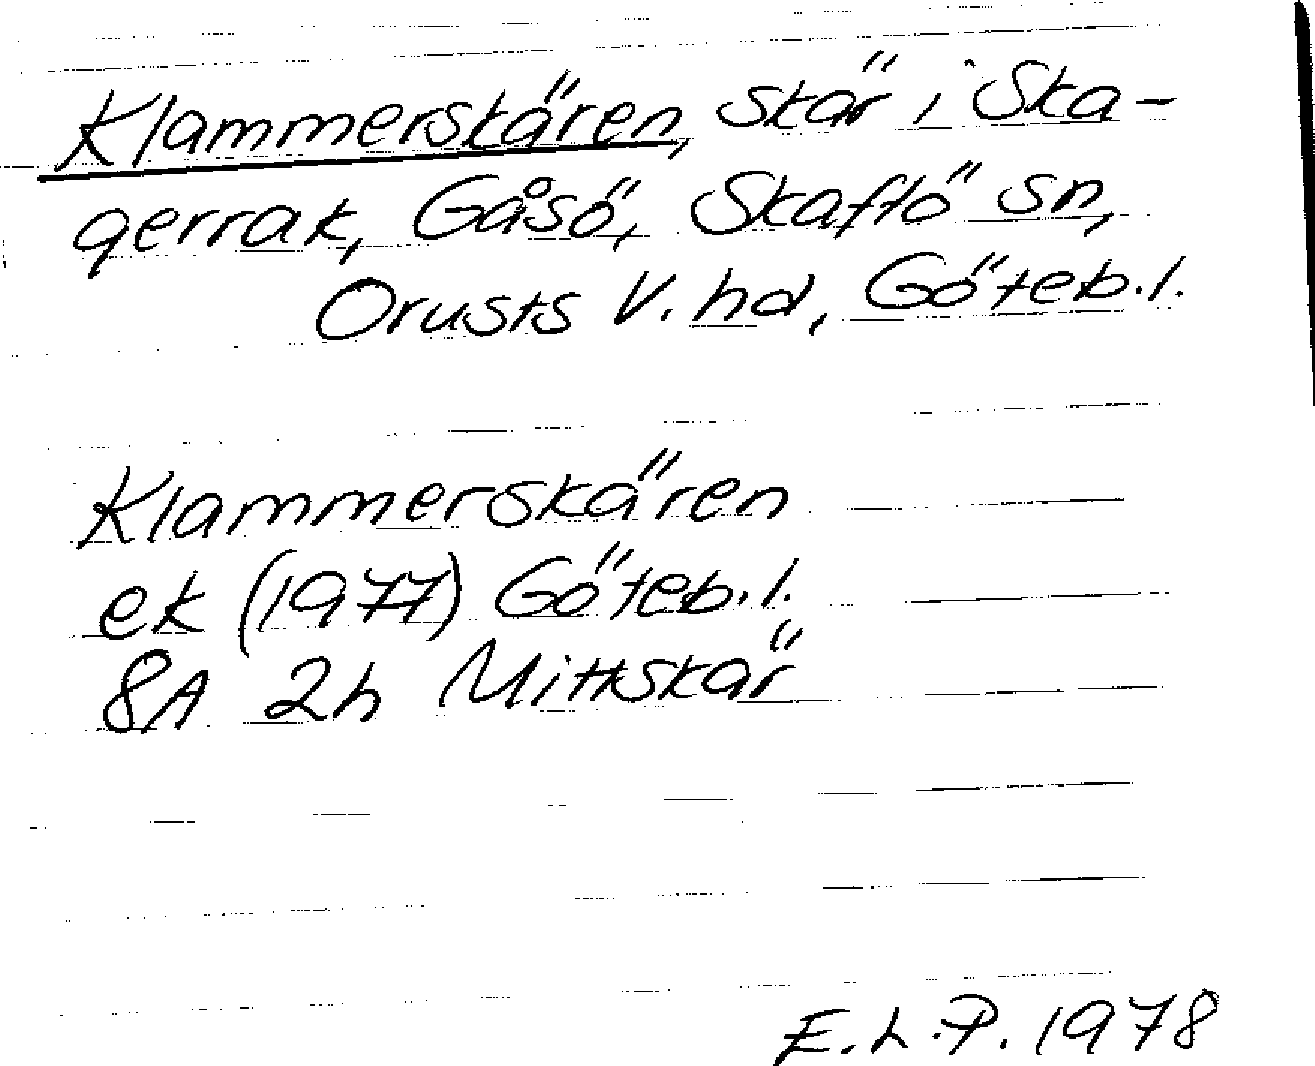 Klammerskären, skär i Ska-
gerrak, Gåsö, Skaftö sn,
Orusts V. hd, Göteb. l.
Klammerskären
ek (1977) Göteb. l.
8A 2h Mittskär
E.L.P. 1978